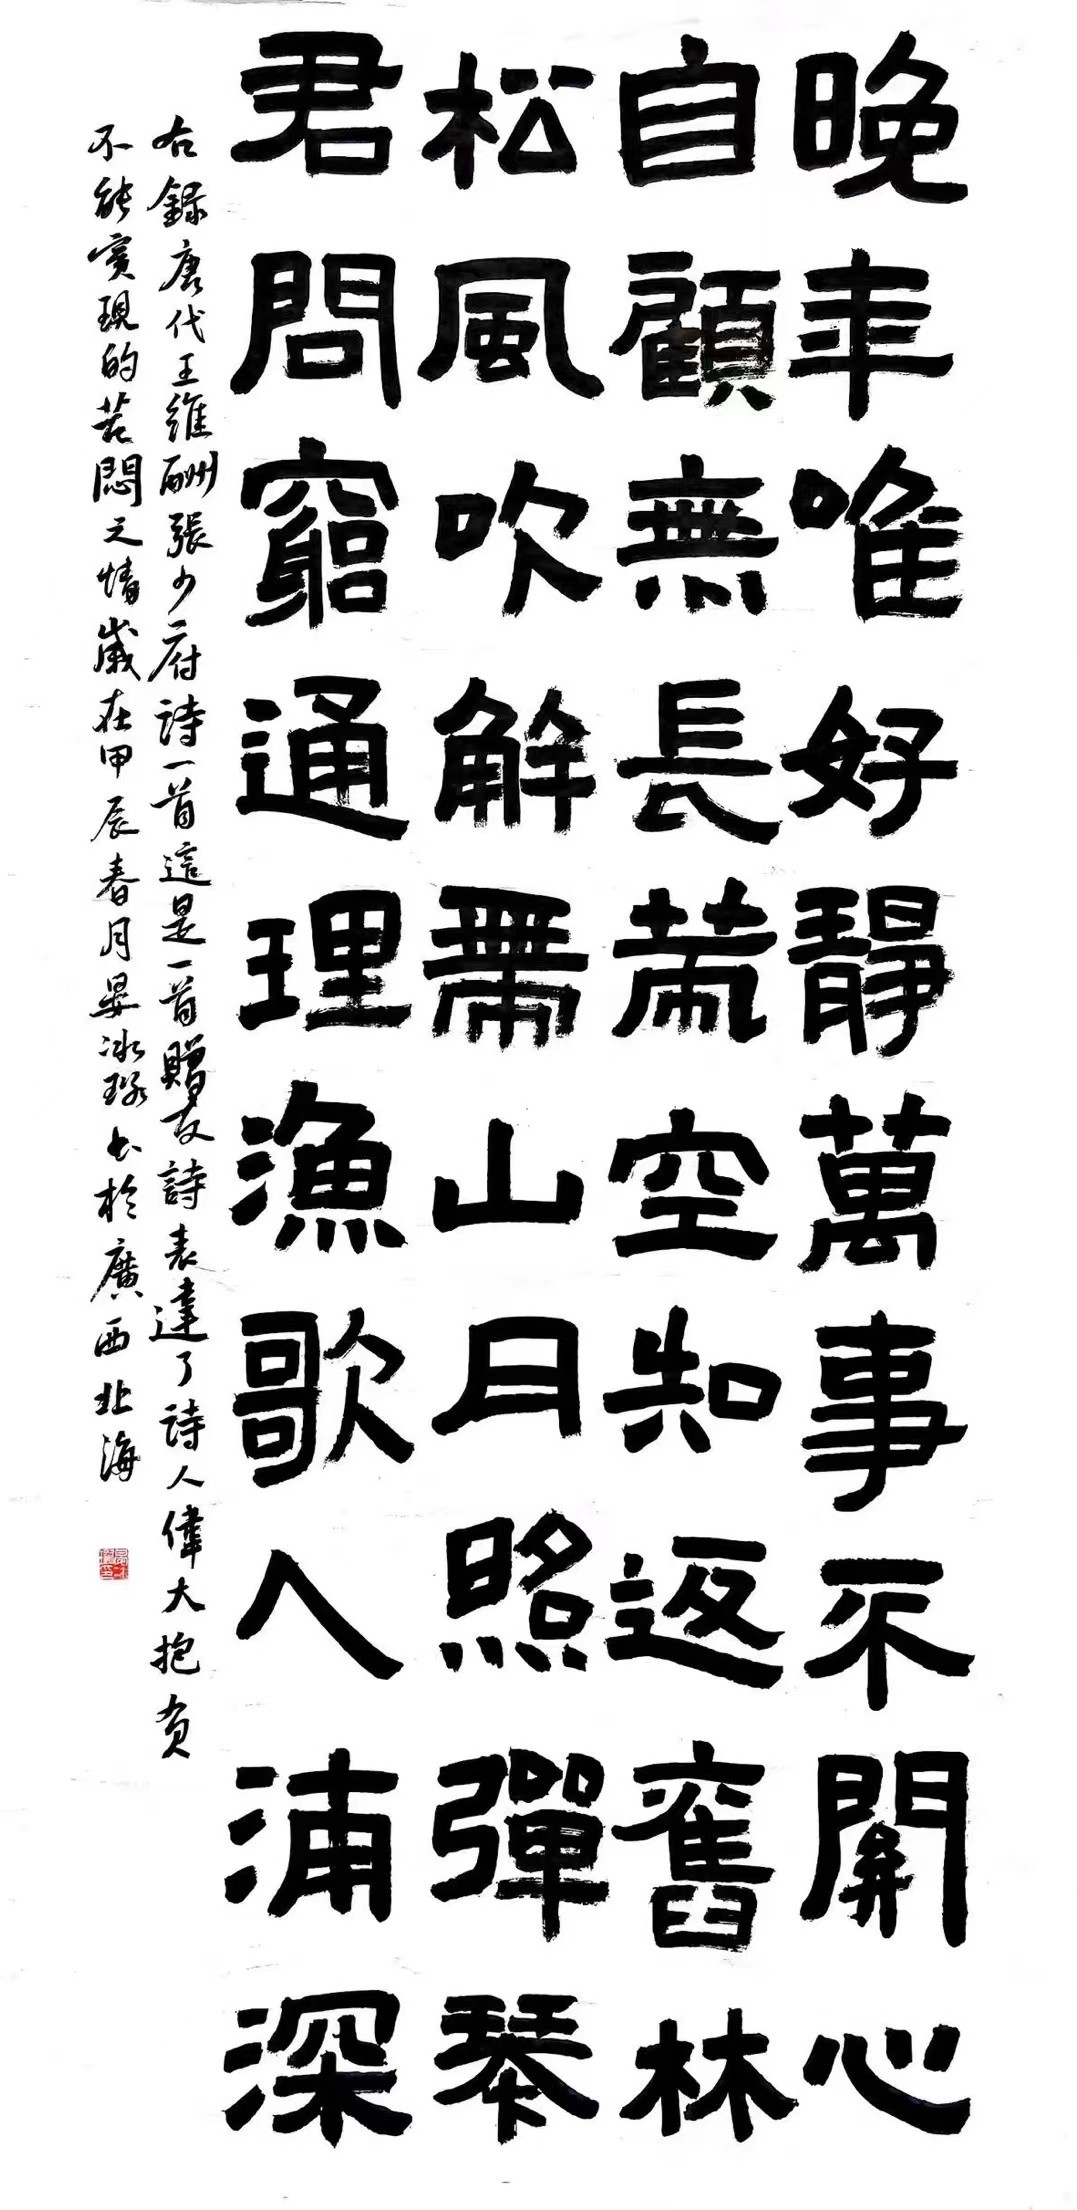 晚年唯好靜萬事不關心
自顧無長策空知返舊林
松風吹解帶山月照彈琴
君問窮通理漁歌入浦深
右錄唐代王維酬張少府詩一首這是一首贈友詩表達了詩人偉大抱負
不能實現的苦悶之情歲在甲辰春月晏冰瑤書於廣西北海